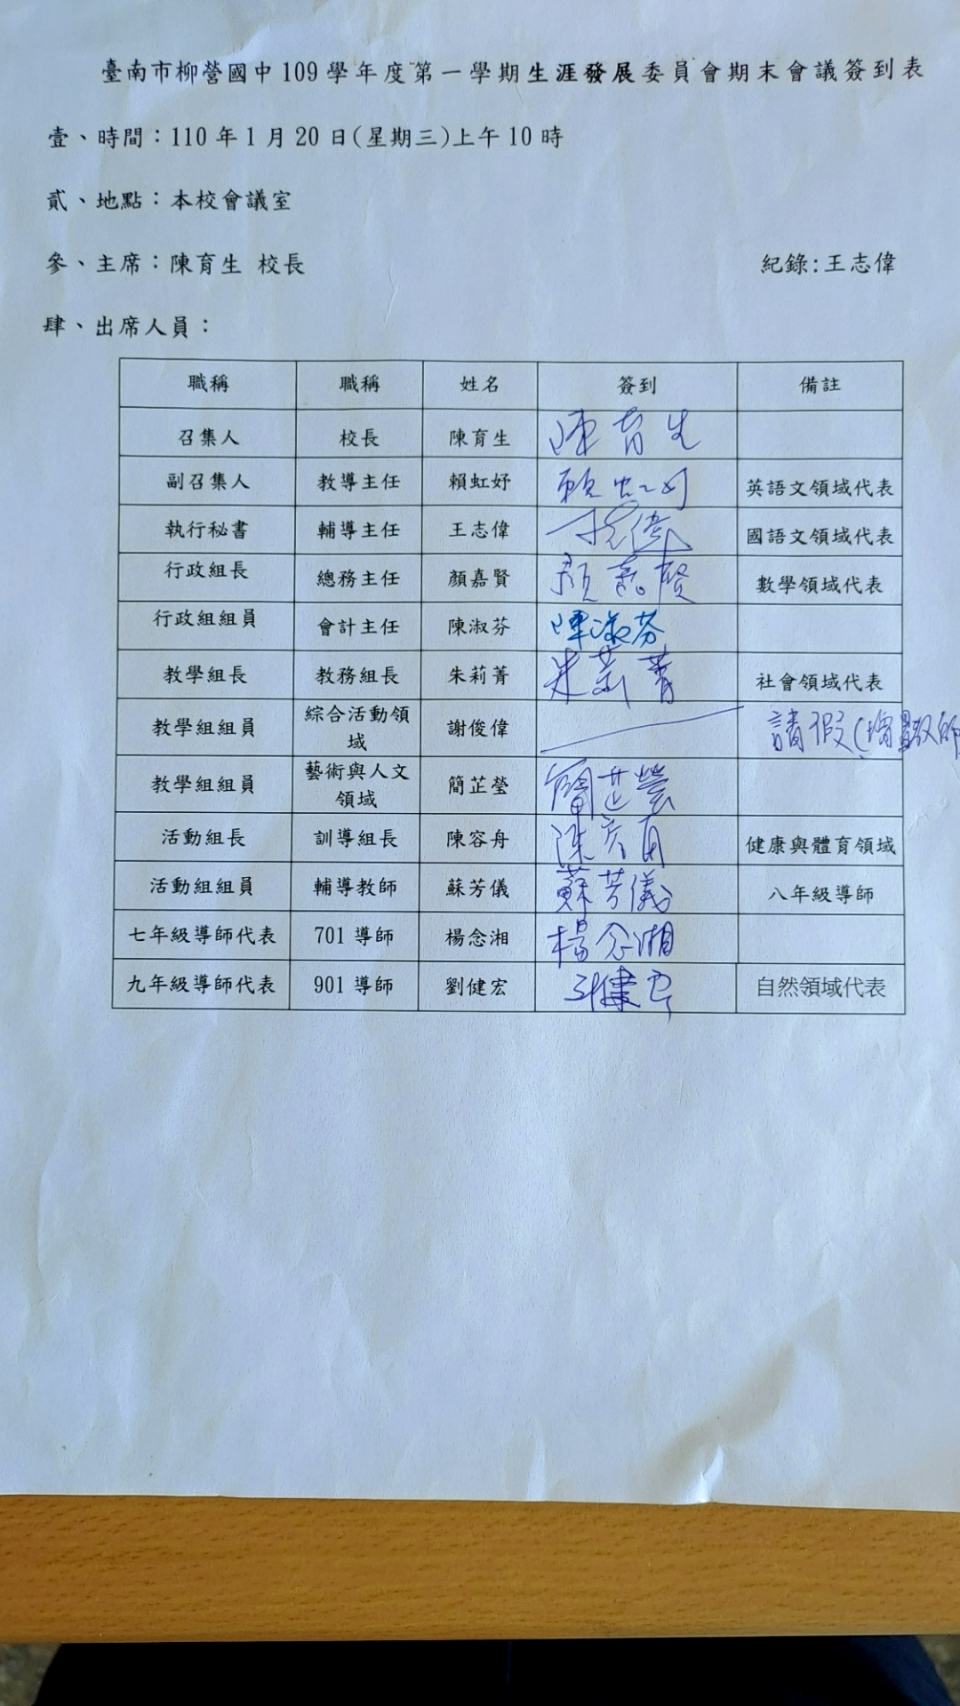 臺南市柳營國中 109 學年度第一學期生涯發展委員會期末會議簽到表
壹、時間：110 年 1 月 20 日(星期三)上午 10 時
貳、地點：本校會議室
參、主席：陳育生 校長 紀錄:王志偉
肆、出席人員：
職稱 職稱 姓名 簽到 備註
召集人 校長 陳育生 陳育生
副召集人 教導主任 賴虹妤 賴虹妤 英語文領域代表
執行秘書 輔導主任 王志偉 王志偉 國語文領域代表
行政組長 總務主任 顏嘉賢 顏嘉賢 數學領域代表
行政組組員 會計主任 陳淑芬 陳淑芬
教學組長 教務組長 朱莉菁 朱莉菁 社會領域代表
教學組組員 綜合活動領域 謝俊偉 請假(增置教師
教學組組員 藝術與人文領域 簡芷瑩 簡芷瑩
活動組長 訓導組長 陳容舟 陳容舟 健康與體育領域
活動組組員 輔導教師 蘇芳儀 蘇芳儀 八年級導師
七年級導師代表 701 導師 楊念湘 楊念湘
九年級導師代表 901 導師 劉健宏 劉健宏 自然領域代表